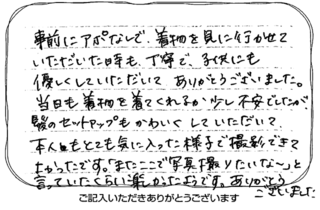 事前にアポなしで、着物を見に行かせて
いただいた時も、丁寧で、子供にも
優しくしていただいて ありがとうございました。
当日も着物を着てくれるか少し不安でしたが
髪のセットアップもかわいくしていただいて、
本人もとても気に入った様子で撮影できて
よかったです。「またここで写真撮りたいな〜」と
言っていたくらい楽しかったようです。ありがとう
ございました
ご記入いただきありがとうございます